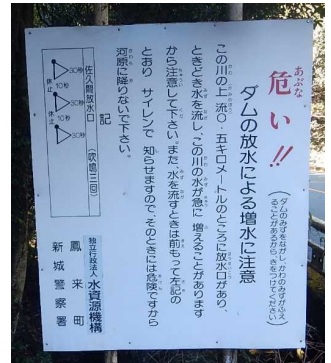 危い!!
(ダムのみずをながし、かわのみずがふえることがあるから きをつけてください)
ダムの放水による増水に注意
この川の上流〇・五キロメートルのところに放水口があり、
ときどき水を流し、この川の水が急に増えることがあります
から注意して下さい。また、水を流すときは前もって左記の
とおり サイレンで 知らせますので、そのときには危険ですから
河原に降りないで下さい。
記
佐久間放水口(吹鳴三回)
30秒
休止 10秒
30秒
休止 10秒
30秒
独立行政法人 水資源機構
鳳来町
新城警察署